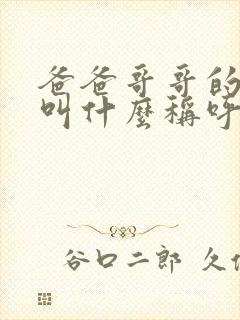 爸爸哥哥的
叫什麼稱呼
谷口二郎 久